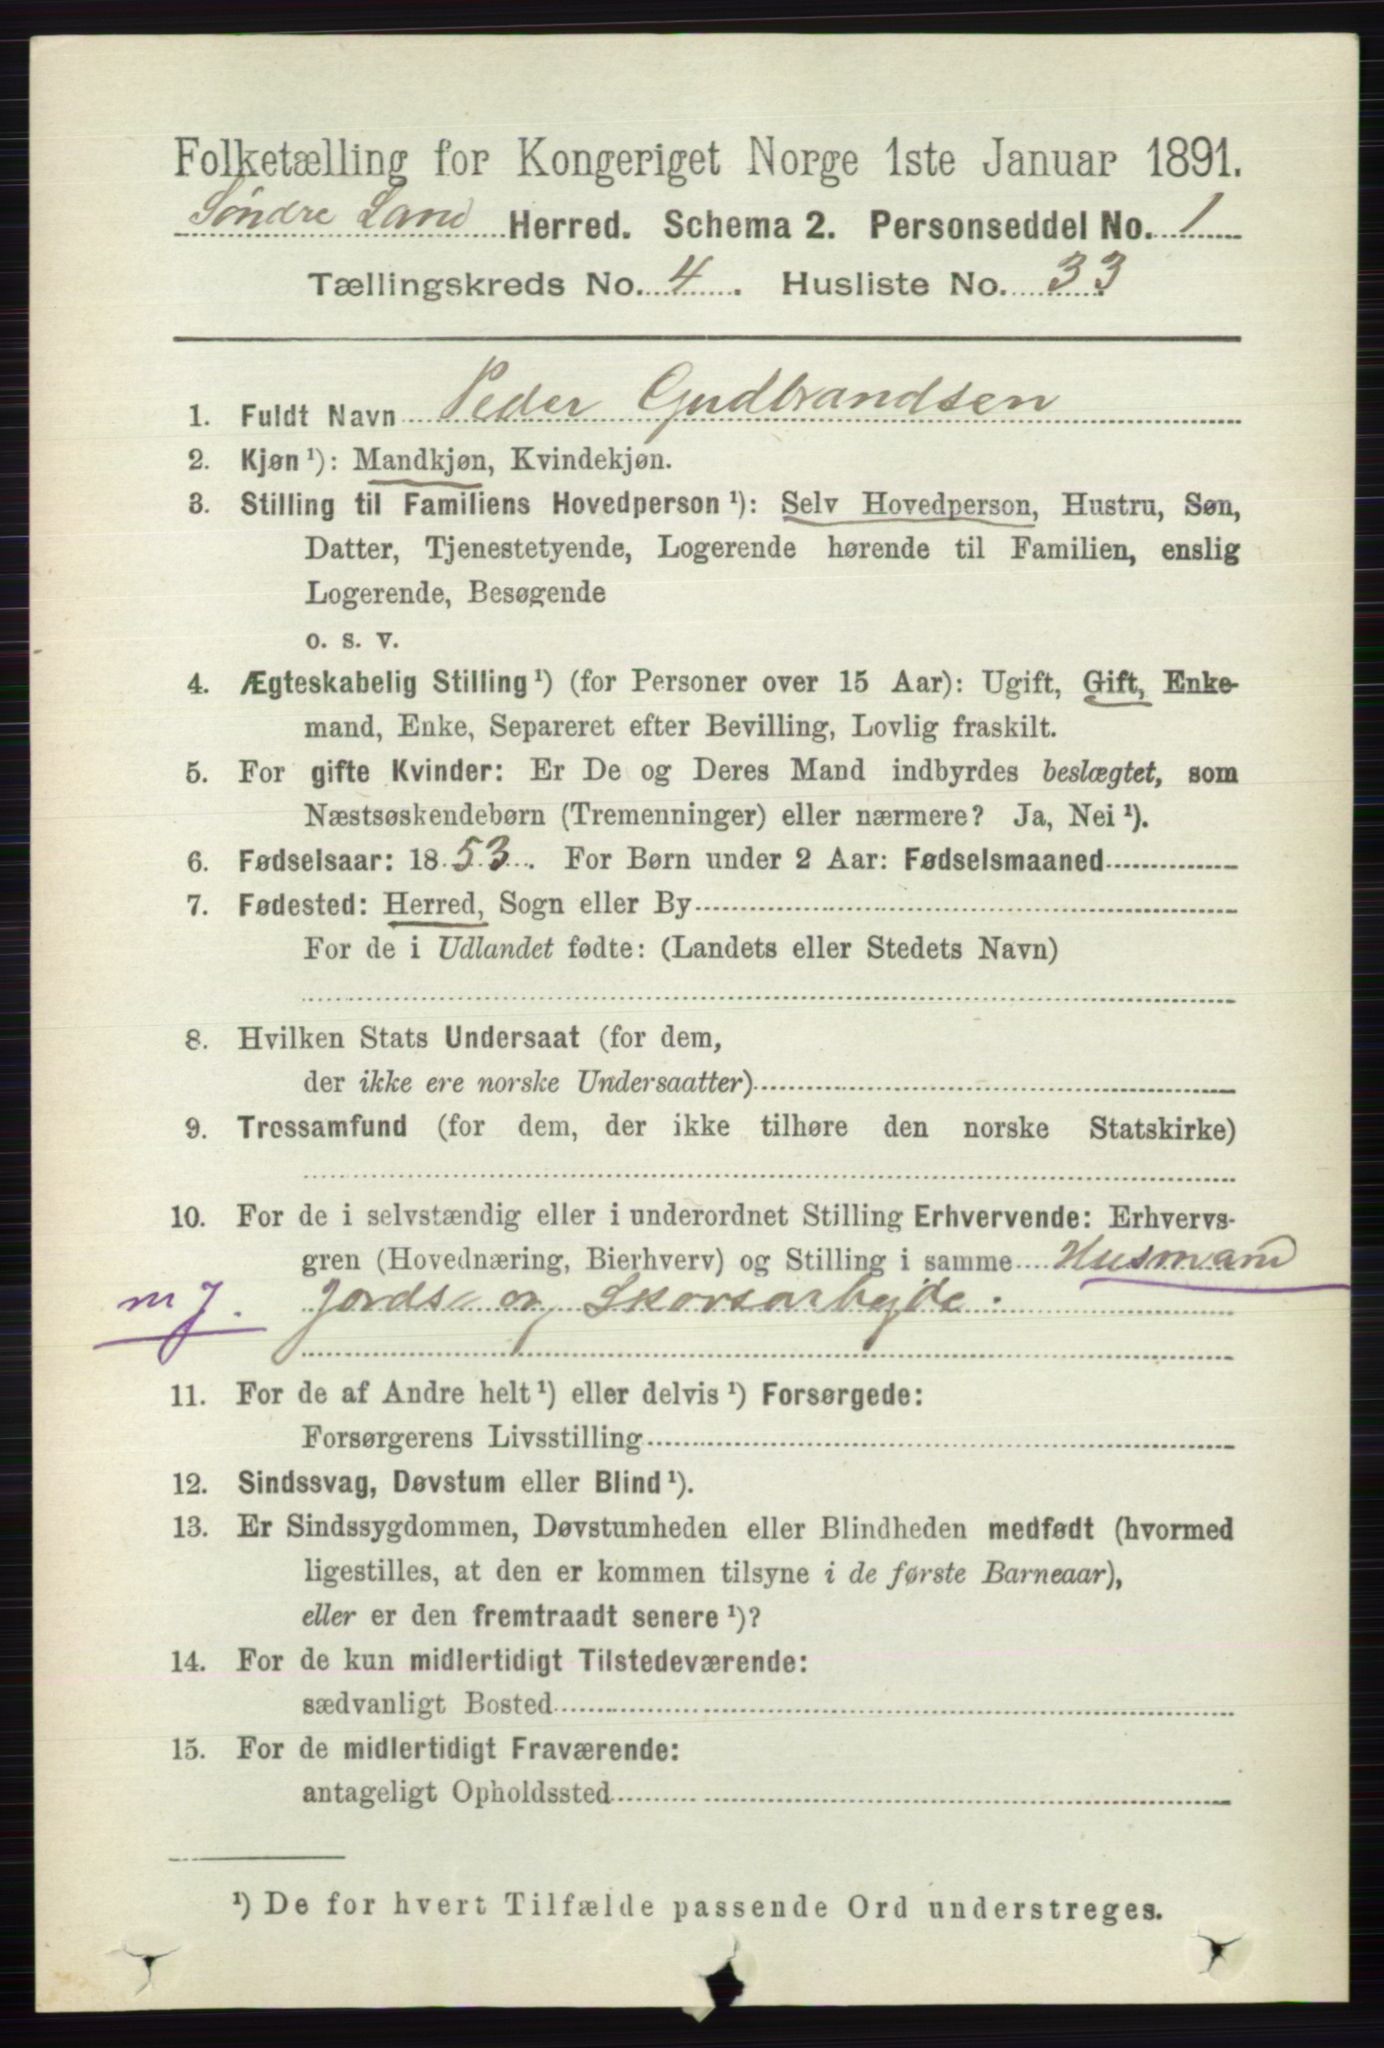 Folketælling for Kongeriget Norge 1ste Januar 1891.
Søndre Land Herred. Schema 2. Personseddel No. 1
Tællingskreds No. 4. Husliste No. 33
1. Fuldt Navn Peder Gudbrandsen
2. Kjøn ¹): Mandkjøn, Kvindekjøn.
3. Stilling til Familiens Hovedperson ¹): Selv Hovedperson, Hustru, Søn,
Datter, Tjenestetyende, Logerende hørende til Familien, enslig
Logerende, Besøgende
o. s. v.
4. Ægteskabelig Stilling ¹) (for Personer over 15 Aar): Ugift, Gift, Enke-
mand, Enke, Separeret efter Bevilling, Lovlig fraskilt.
5. For gifte Kvinder: Er De og Deres Mand indbyrdes beslægtet, som
Næstsøskendebørn (Tremenninger) eller nærmere? Ja, Nei ¹).
6. Fødselsaar: 1853. For Børn under 2 Aar: Fødselsmaaned
7. Fødested: Herred, Sogn eller By
For de i Udlandet fødte: (Landets eller Stedets Navn)
8. Hvilken Stats Undersaat (for dem,
der ikke ere norske Undersaatter)
9. Trossamfund (for dem, der ikke tilhøre den norske Statskirke)
10. For de i selvstændig eller i underordnet Stilling Erhvervende: Erhvervs-
gren (Hovednæring, Bierhverv) og Stilling i samme Husmand
m J. Jords- og Skovsarbejde.
11. For de af Andre helt ¹) eller delvis ¹) Forsørgede:
Forsørgerens Livsstilling
12. Sindssvag, Døvstum eller Blind ¹).
13. Er Sindssygdommen, Døvstumheden eller Blindheden medfødt (hvormed
ligestilles, at den er kommen tilsyne i de første Barneaar),
eller er den fremtraadt senere ¹)?
14. For de kun midlertidigt Tilstedeværende:
sædvanligt Bosted
15. For de midlertidigt Fraværende:
antageligt Opholdssted
¹) De for hvert Tilfælde passende Ord understreges.